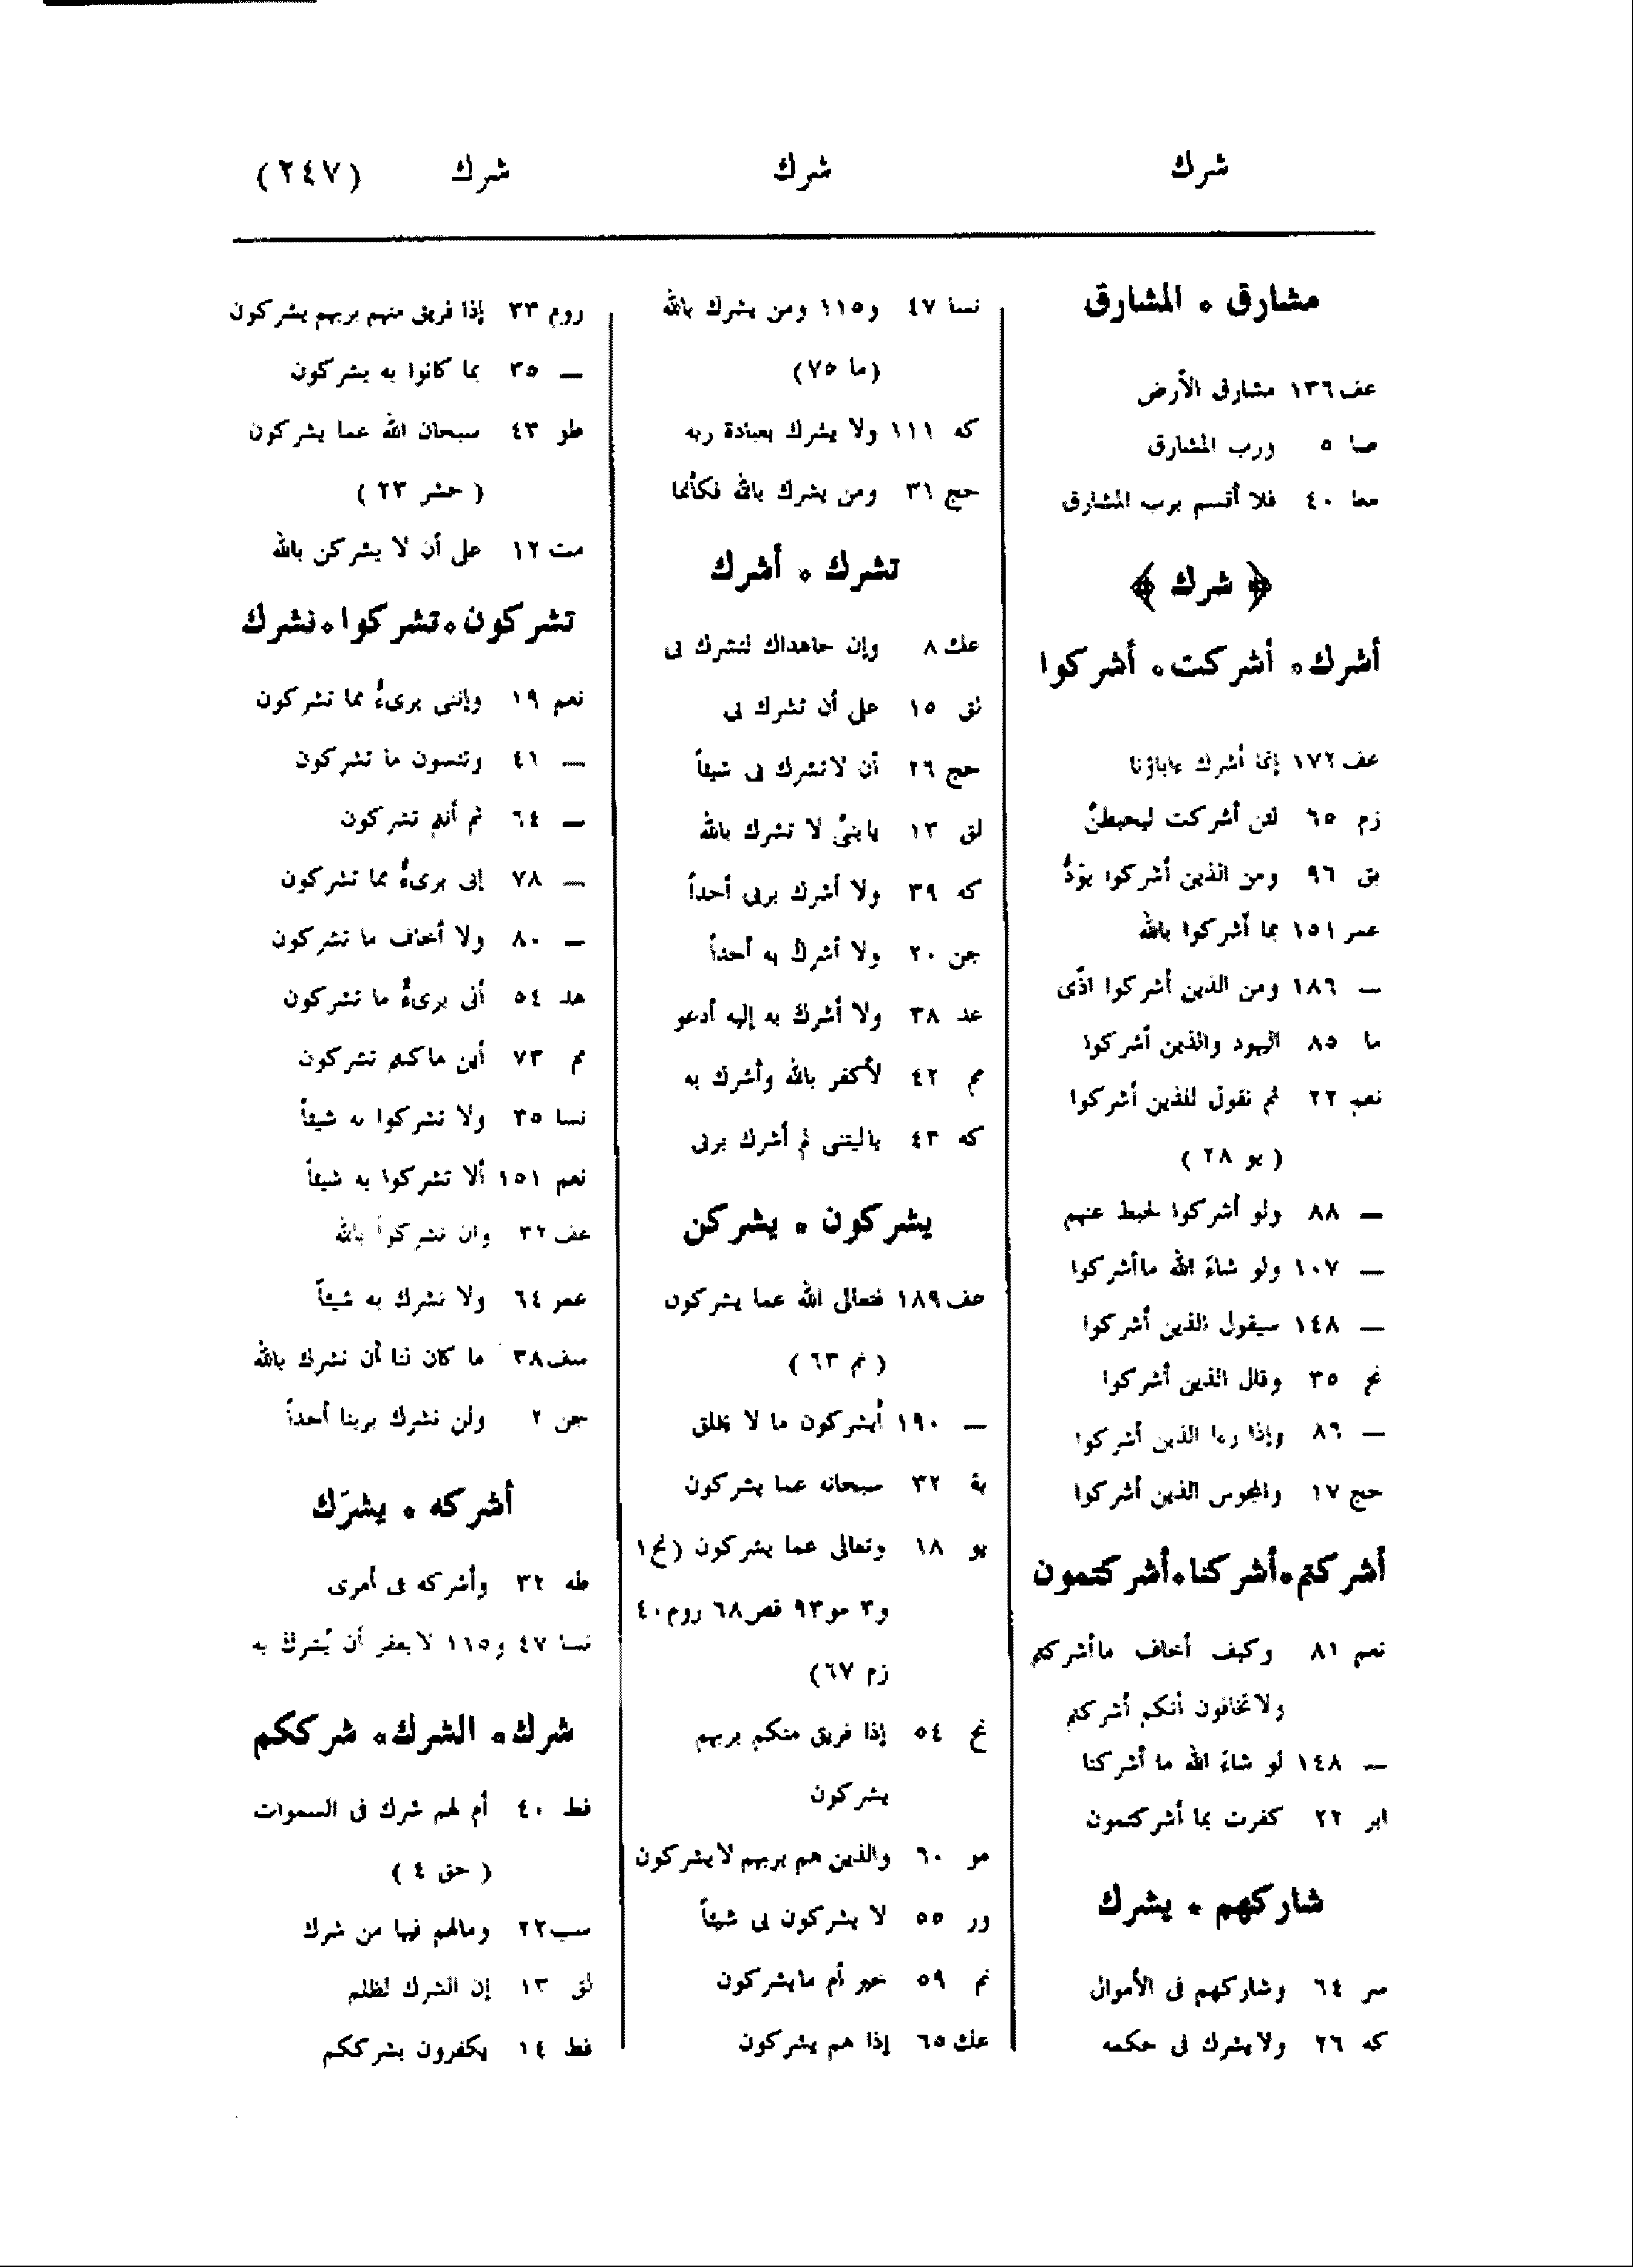 شرك
شرك
شرك
(٢٤٧)
مشارق * المشارق
عف ١٣٦ مشارق الأرض
صا ٥ ورب المشارق
معا ٤٠ فلا أقسم برب المشارق
﴿ شرك ﴾
أشرك * أشركت * أشركوا
عف ١٧٢ إنما أشرك ءاباؤنا
زم ٦٥ لئن أشركت ليحبطنَّ
بق ٩٦ ومن الذين أشركوا يوَدُّ
عمر ١٥١ بما أشركوا بالله
— ١٨٦ ومن الذين أشركوا أذًى
ما ٨٥ اليهود والذين أشركوا
نعم ٢٢ ثم نقول للذين أشركوا
( يو ٢٨ )
— ٨٨ ولو أشركوا لحبط عنهم
— ١٠٧ ولو شاءَ الله ما أشركوا
— ١٤٨ سيقول الذين أشركوا
نح ٣٥ وقال الذين أشركوا
— ٨٦ وإذا رءا الذين أشركوا
حج ١٧ والمجوس الذين أشركوا
أشركتم * أشركنا * أشركتمون
نعم ٨١ وكيف أخاف ما أشركتم
ولا تخافون أنكم أشركتم
— ١٤٨ لو شاءَ الله ما أشركنا
ابر ٢٢ كفرت بما أشركتمون
شاركهم * يشرك
سر ٦٤ وشاركهم فى الأموال
كه ٢٦ ولا يشرك فى حكمه
نسا ٤٧ و١١٥ ومن يشرك بالله
(ما ٧٥)
كه ١١١ ولا يشرك بعبادة ربه
حج ٣١ ومن يشرك بالله فكأنما
تشرك * أشرك
عك ٨ وإن جاهداك لتشرك بى
لق ١٥ على أن تشرك بى
حج ٢٦ أن لا تشرك بى شيئاً
لق ١٣ يابنىَّ لا تشرك بالله
كه ٣٩ ولا أشرك بربى أحداً
جن ٢٠ ولا أشرك به أحداً
عد ٣٨ ولا أشرك به إليه أدعو
مم ٤٢ لأكفر بالله وأشرك به
كه ٤٣ ياليتنى لم أشرك بربى
يشركون * يشركن
عف ١٨٩ فتعالى الله عما يشركون
( نم ٦٣ )
— ١٩٠ أيشركون ما لا يخلق
بة ٣٢ سبحانه عما يشركون
يو ١٨ وتعالى عما يشركون (نح ١
و٣ مو ٩٣ قص ٦٨ روم ٤٠
زم ٦٧)
نح ٥٤ إذا فريق منكم بربهم
يشركون
مو ٦٠ والذين هم بربهم لا يشركون
ور ٥٥ لا يشركون بى شيئاً
نم ٥٩ خير أم ما يشركون
عك ٦٥ إذا هم يشركون
روم ٣٣ إذا فريق منهم بربهم يشركون
— ٣٥ بما كانوا به يشركون
طو ٤٣ سبحان الله عما يشركون
( حشر ٢٣ )
مت ١٢ على أن لا يشركن بالله
تشركون * تشركوا * نشرك
نعم ١٩ وإننى برىءٌ مما تشركون
— ٤١ وتنسون ما تشركون
— ٦٤ ثم أنتم تشركون
— ٧٨ إنى برىءٌ مما تشركون
— ٨٠ ولا أخاف ما تشركون
هد ٥٤ أنى برىءٌ ما تشركون
مم ٧٣ أين ما كنتم تشركون
نسا ٣٥ ولا تشركوا به شيئاً
نعم ١٥١ ألا تشركوا به شيئاً
عف ٣٢ وان تشركوا بالله
عمر ٦٤ ولا نشرك به شيئاً
سف ٣٨ ما كان لنا أن نشرك بالله
جن ٢ ولن نشرك بربنا أحداً
أشركه * يشرَك
طه ٣٢ وأشركه فى أمرى
نسا ٤٧ و١١٥ لا يغفر أن يُشرك به
شرك * الشرك * شرككم
فط ٤٠ أم لهم شرك فى السموات
( حق ٤ )
سب ٢٢ ومالهم فيها من شرك
لق ١٣ إن الشرك لظلم
فط ١٤ يكفرون بشرككم